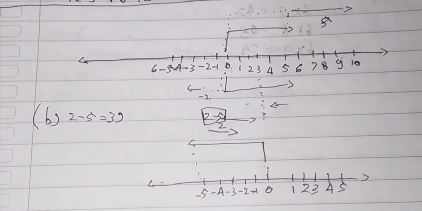 6 -5 -4 -3 -2 -1 0 1 2 3 4 5 6 7 8 9 10
-2
(b) 2-5=39
2
-5 -4 -3 -2 -1 0 1 2 3 4 5